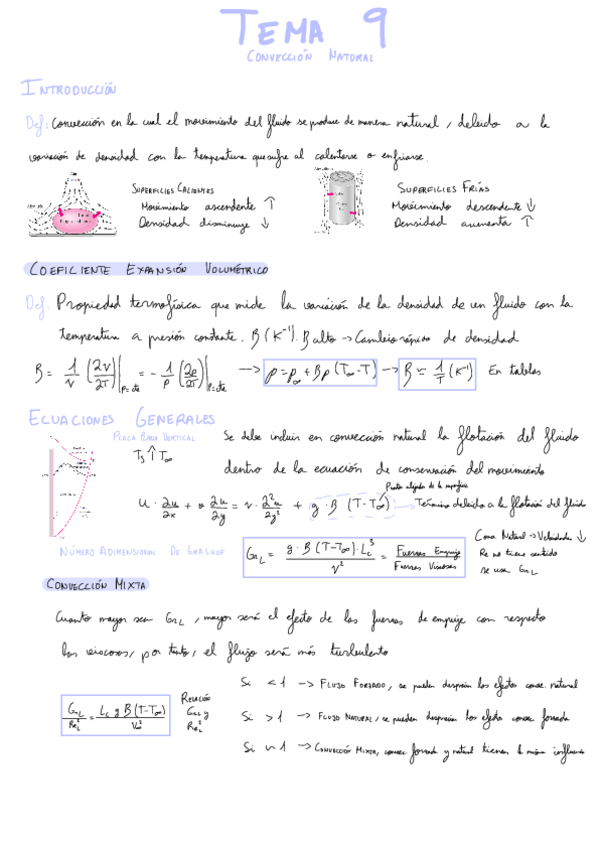 TEMA 9
CONVECCIÓN NATURAL
INTRODUCCIÓN
Def: Convección en la cual el movimiento del fluido se produce de manera natural, debido a la
variación de densidad con la temperatura que sufre al calentarse o enfriarse.
SUPERFICIES CALIENTES
Movimiento ascendente ↑
Densidad disminuye ↓
SUPERFICIES FRÍAS
Movimiento descendente ↓
Densidad aumenta ↑
COEFICIENTE EXPANSIÓN VOLUMÉTRICO
Def. Propiedad termofísica que mide la variación de la densidad de un fluido con la
temperatura a presión constante. B (K⁻¹). B alto → Cambio rápido de densidad
B = 1/v (∂v/∂T)|P=cte = - 1/ρ (∂ρ/∂T)|P=cte → ρ = ρ∞ + Bρ (T∞-T) → B ≃ 1/T (K⁻¹) En tablas
ECUACIONES GENERALES
PLACA PLANA VERTICAL
Ts ↑ T∞
Se debe incluir en convección natural la flotación del fluido
dentro de la ecuación de conservación del movimiento
Punto alejado de la superficie
u · ∂u/∂x + v ∂u/∂y = v · ∂²u/∂y² + g · B (T-T∞) → Término debido a la flotación del fluido
NÚMERO ADIMENSIONAL DE GRASHOF
GrL = g · B (T-T∞) · Lc³ / v² = Fuerzas Empuje / Fuerzas Viscosas
Conv Natural → Velocidades ↓
Re no tiene sentido
se usa GrL
CONVECCIÓN MIXTA
Cuanto mayor sea GrL, mayor será el efecto de las fuerzas de empuje con respecto
las viscosas, por tanto, el flujo será más turbulento
GrL / ReL² = Lc g B (T-T∞) / V∞²
RELACIÓN
GrL y
ReL²
Si < 1 → FLUJO FORZADO, se pueden despreciar los efectos convec natural
Si > 1 → FLUJO NATURAL, se pueden despreciar los efectos convec forzada
Si ~ 1 → CONVECCIÓN MIXTA, convec forzada y natural tienen la misma influencia